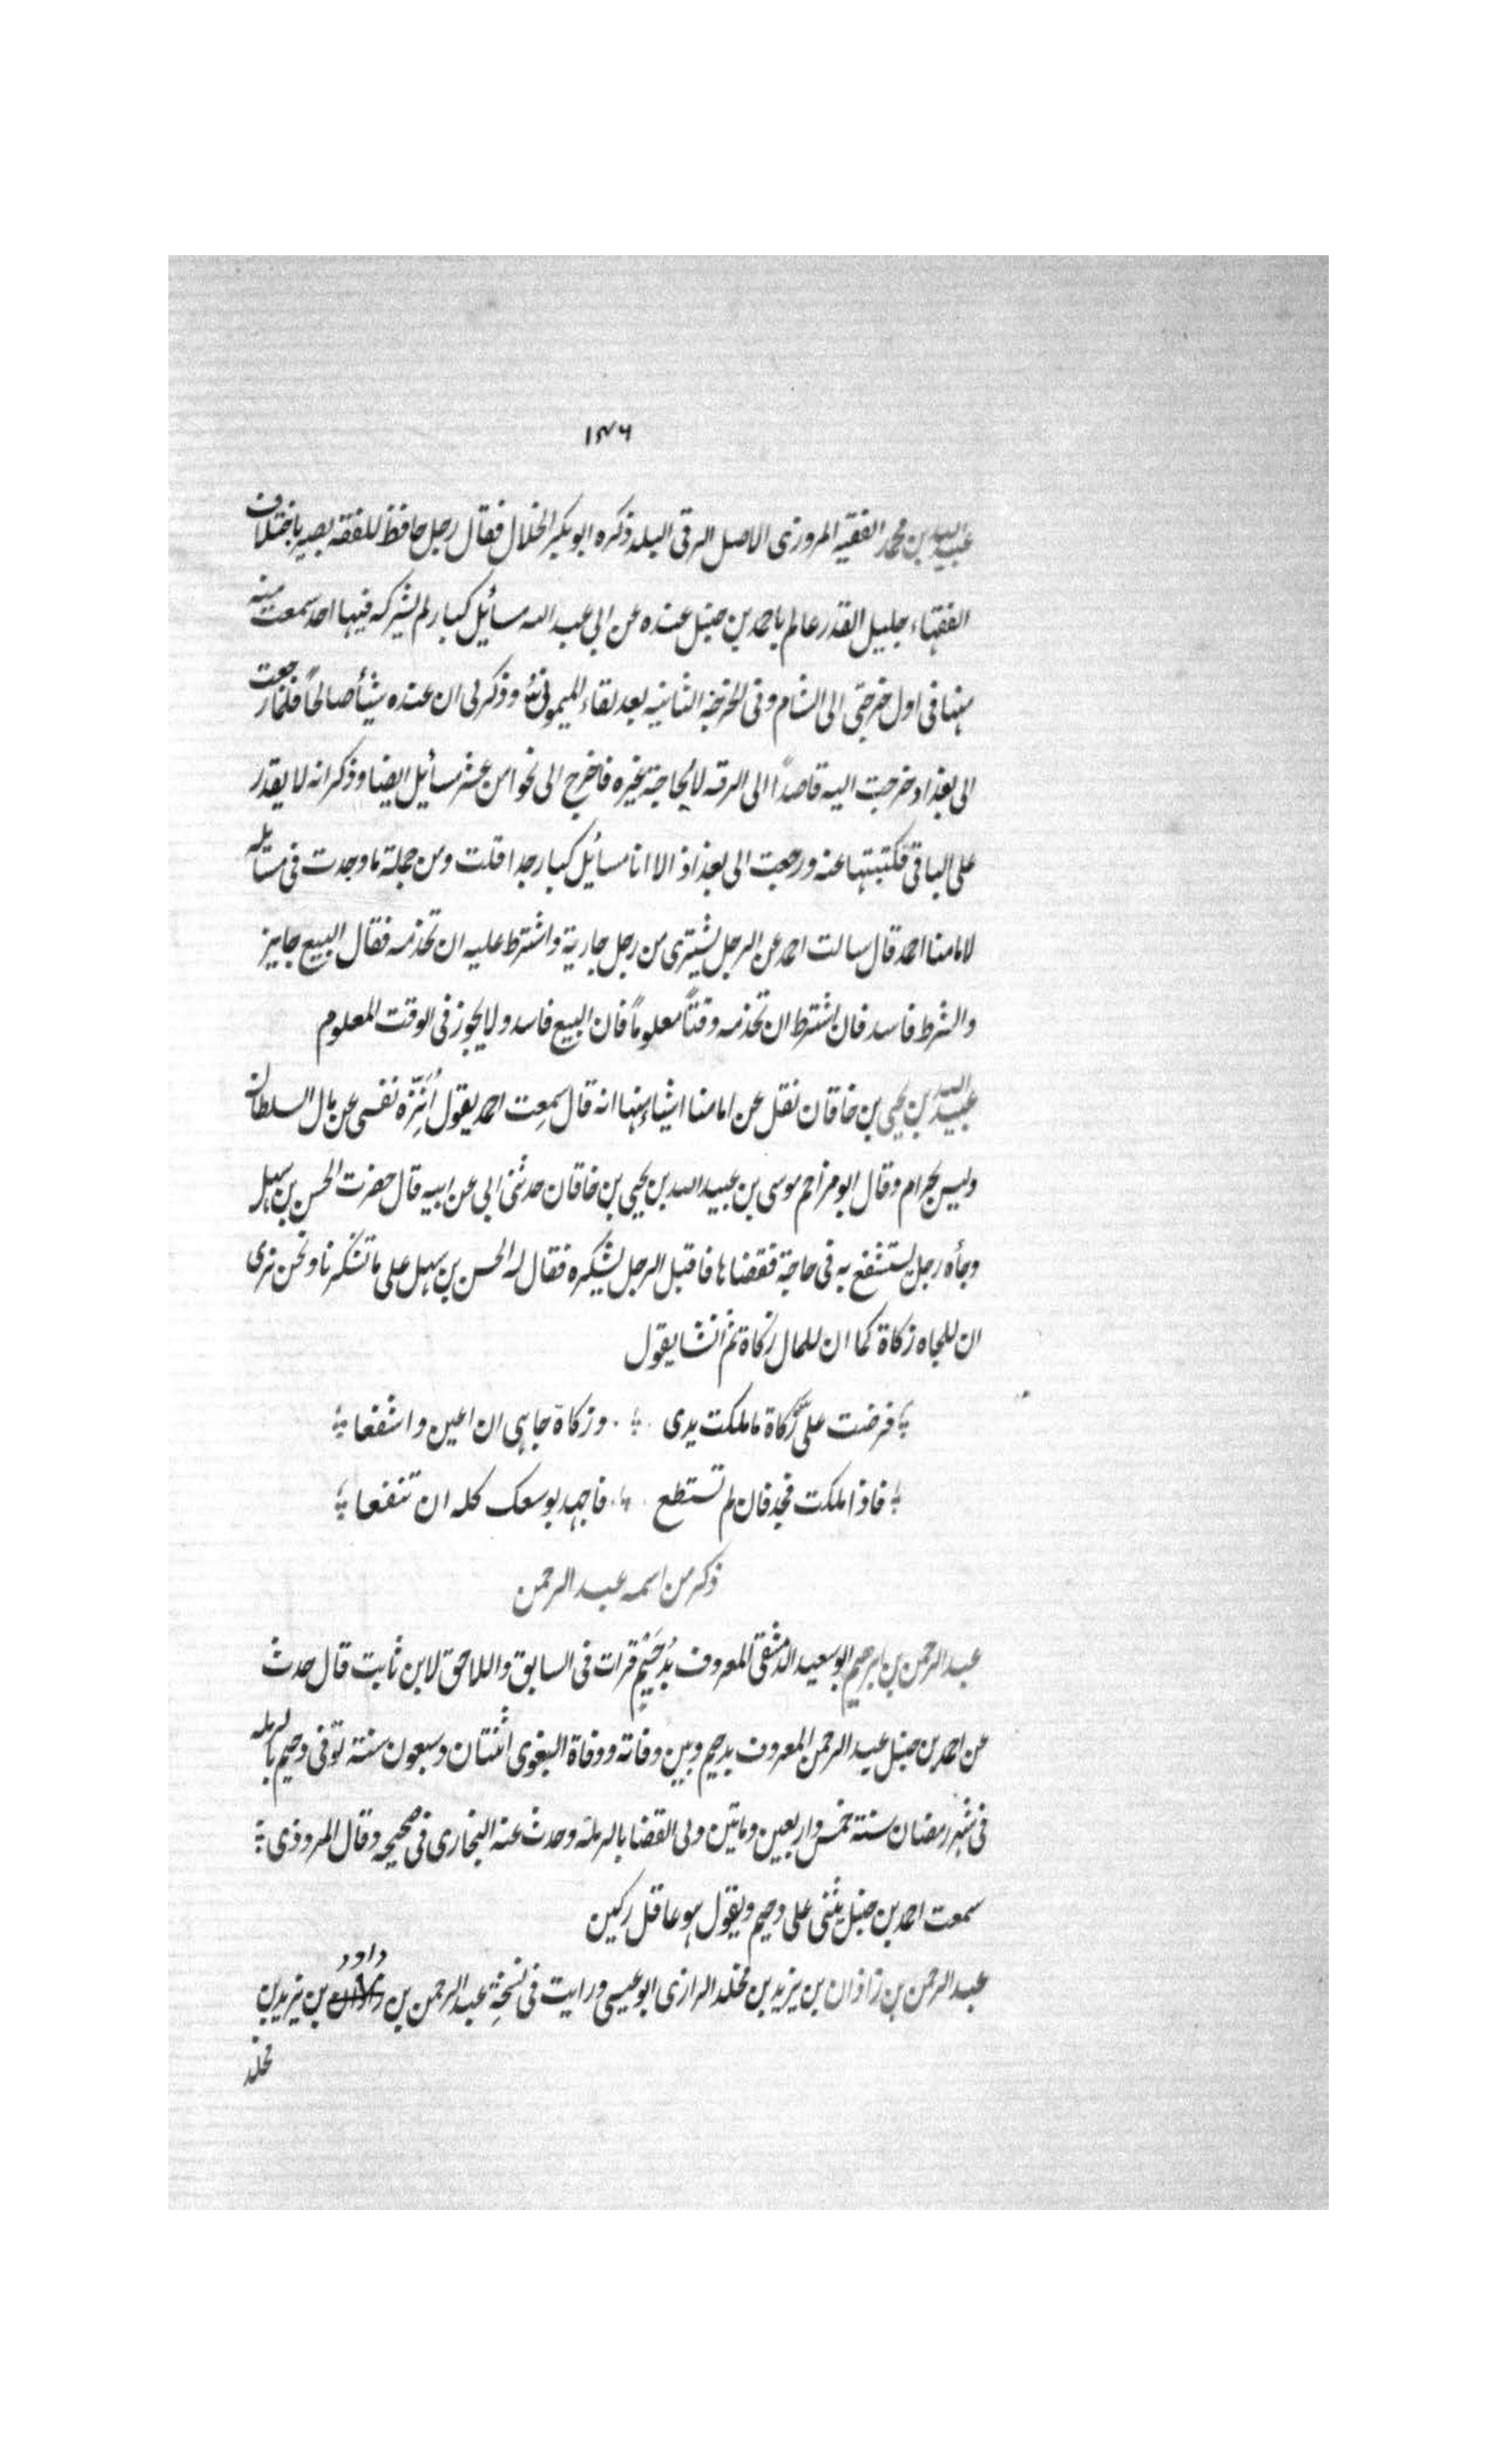 ١٤٦
عبيد الله بن محمد الفقيه المروزى الاصل الرقى البلد ذكره ابو بكر الخلال فقال رجل حافظ للفقه بصير باختلاف
الفقهاء جليل القدر عالم باحمد بن حنبل عنده عن ابى عبد الله مسائيل كبار لم يشركه فيها احد سمعت منه
منها فى اول خرجتى الى الشام وفى الخرجة الثانيه بعد لقاء الميمونى وذكر لى ان عنده شيأ صالحاً فلما رجعت
الى بغداد خرجت اليه قاصداً الى الرقه لا لحاجة غيره فاخرج الى نحوا من عشر مسائيل ايضا وذكر انه لا يقدر
على الباقى فكتبتها عنه ورجعت الى بغداذ الا انا مسائيل كبار جدا قلت ومن جملة ما وجدت فى مسايله
لامامنا احمد قال سالت احمد عن الرجل يشترى من رجل جارية واشترط عليه ان تخدمه فقال البيع جايز
والشرط فاسد فان اشترط ان تخدمه وقتاً معلوماً فان البيع فاسد ولا يجوز فى الوقت المعلوم
عبيد الله بن يحيى بن خاقان نقل عن امامنا اشياء منها انه قال سمعت احمد يقول اُنَزِّه نفسى عن مال السلطان
وليس بحرام وقال ابو مزاحم موسى بن عبيد الله بن يحيى بن خاقان حدثنى ابى عن ابيه قال حضرت الحسن بن سهل
وجأه رجل يستشفع به فى حاجة فقضاها فاقبل الرجل يشكره فقال له الحسن بن سهل على ما تشكرنا ونحن نرى
ان للجاه زكاة كما ان للمال زكاة ثم انشا يقول
فرضت علىّ زكاة ما ملكت يدى وزكاة جاهى ان اعين واشفعا
فاذا ملكت فجد فان لم تستطع فاجهد بوسعك كله ان تنفعا
ذكر من اسمه عبد الرحمن
عبد الرحمن بن ابرهيم ابو سعيد الدمشقى المعروف بدُحَيْم قرات فى السابق واللاحق لابن ثابت قال حدث
عن احمد بن حنبل عبد الرحمن المعروف بدحيم وبين وفاته ووفاة البغوى اثنتان وسبعون سنة توفى دحيم بالرمله
فى شهر رمضان سنة خمس واربعين ومأتين ولى القضا بالرملة وحدث عنه البخارى فى صحيحه وقال المروذى
سمعت احمد بن حنبل يثنى على دحيم ويقول هو عاقل ركين
عبد الرحمن بن زاذان بن يزيد بن مخلد الرازى ابو عيسى ورايت فى نسخةِ عبد الرحمن بن داود بن يزيد بن
مخلد